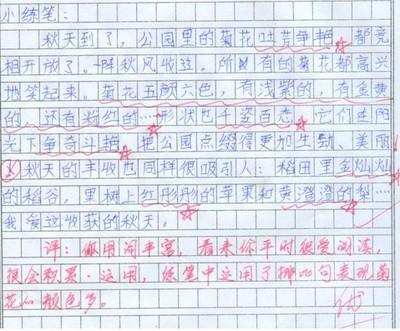 小练笔:
秋天到了,公园里的菊花吐芳争艳,都竞
相开放了。一阵秋风吹过,所有的菊花都高兴
地笑起来。菊花五颜六色,有浅紫的,有金黄
的,还有粉红的……形状也千姿百态,它们在阳
光下争奇斗艳,把公园点缀得更加生动、美丽!
秋天的丰收也同样很吸引人:稻田里金灿灿
的稻谷,果树上红彤彤的苹果和黄澄澄的梨……
我爱这收获的秋天。
评:你用词丰富,看来你平时很爱阅读,
很会积累、运用,练笔中运用了排比句表现菊
花的颜色多。
优